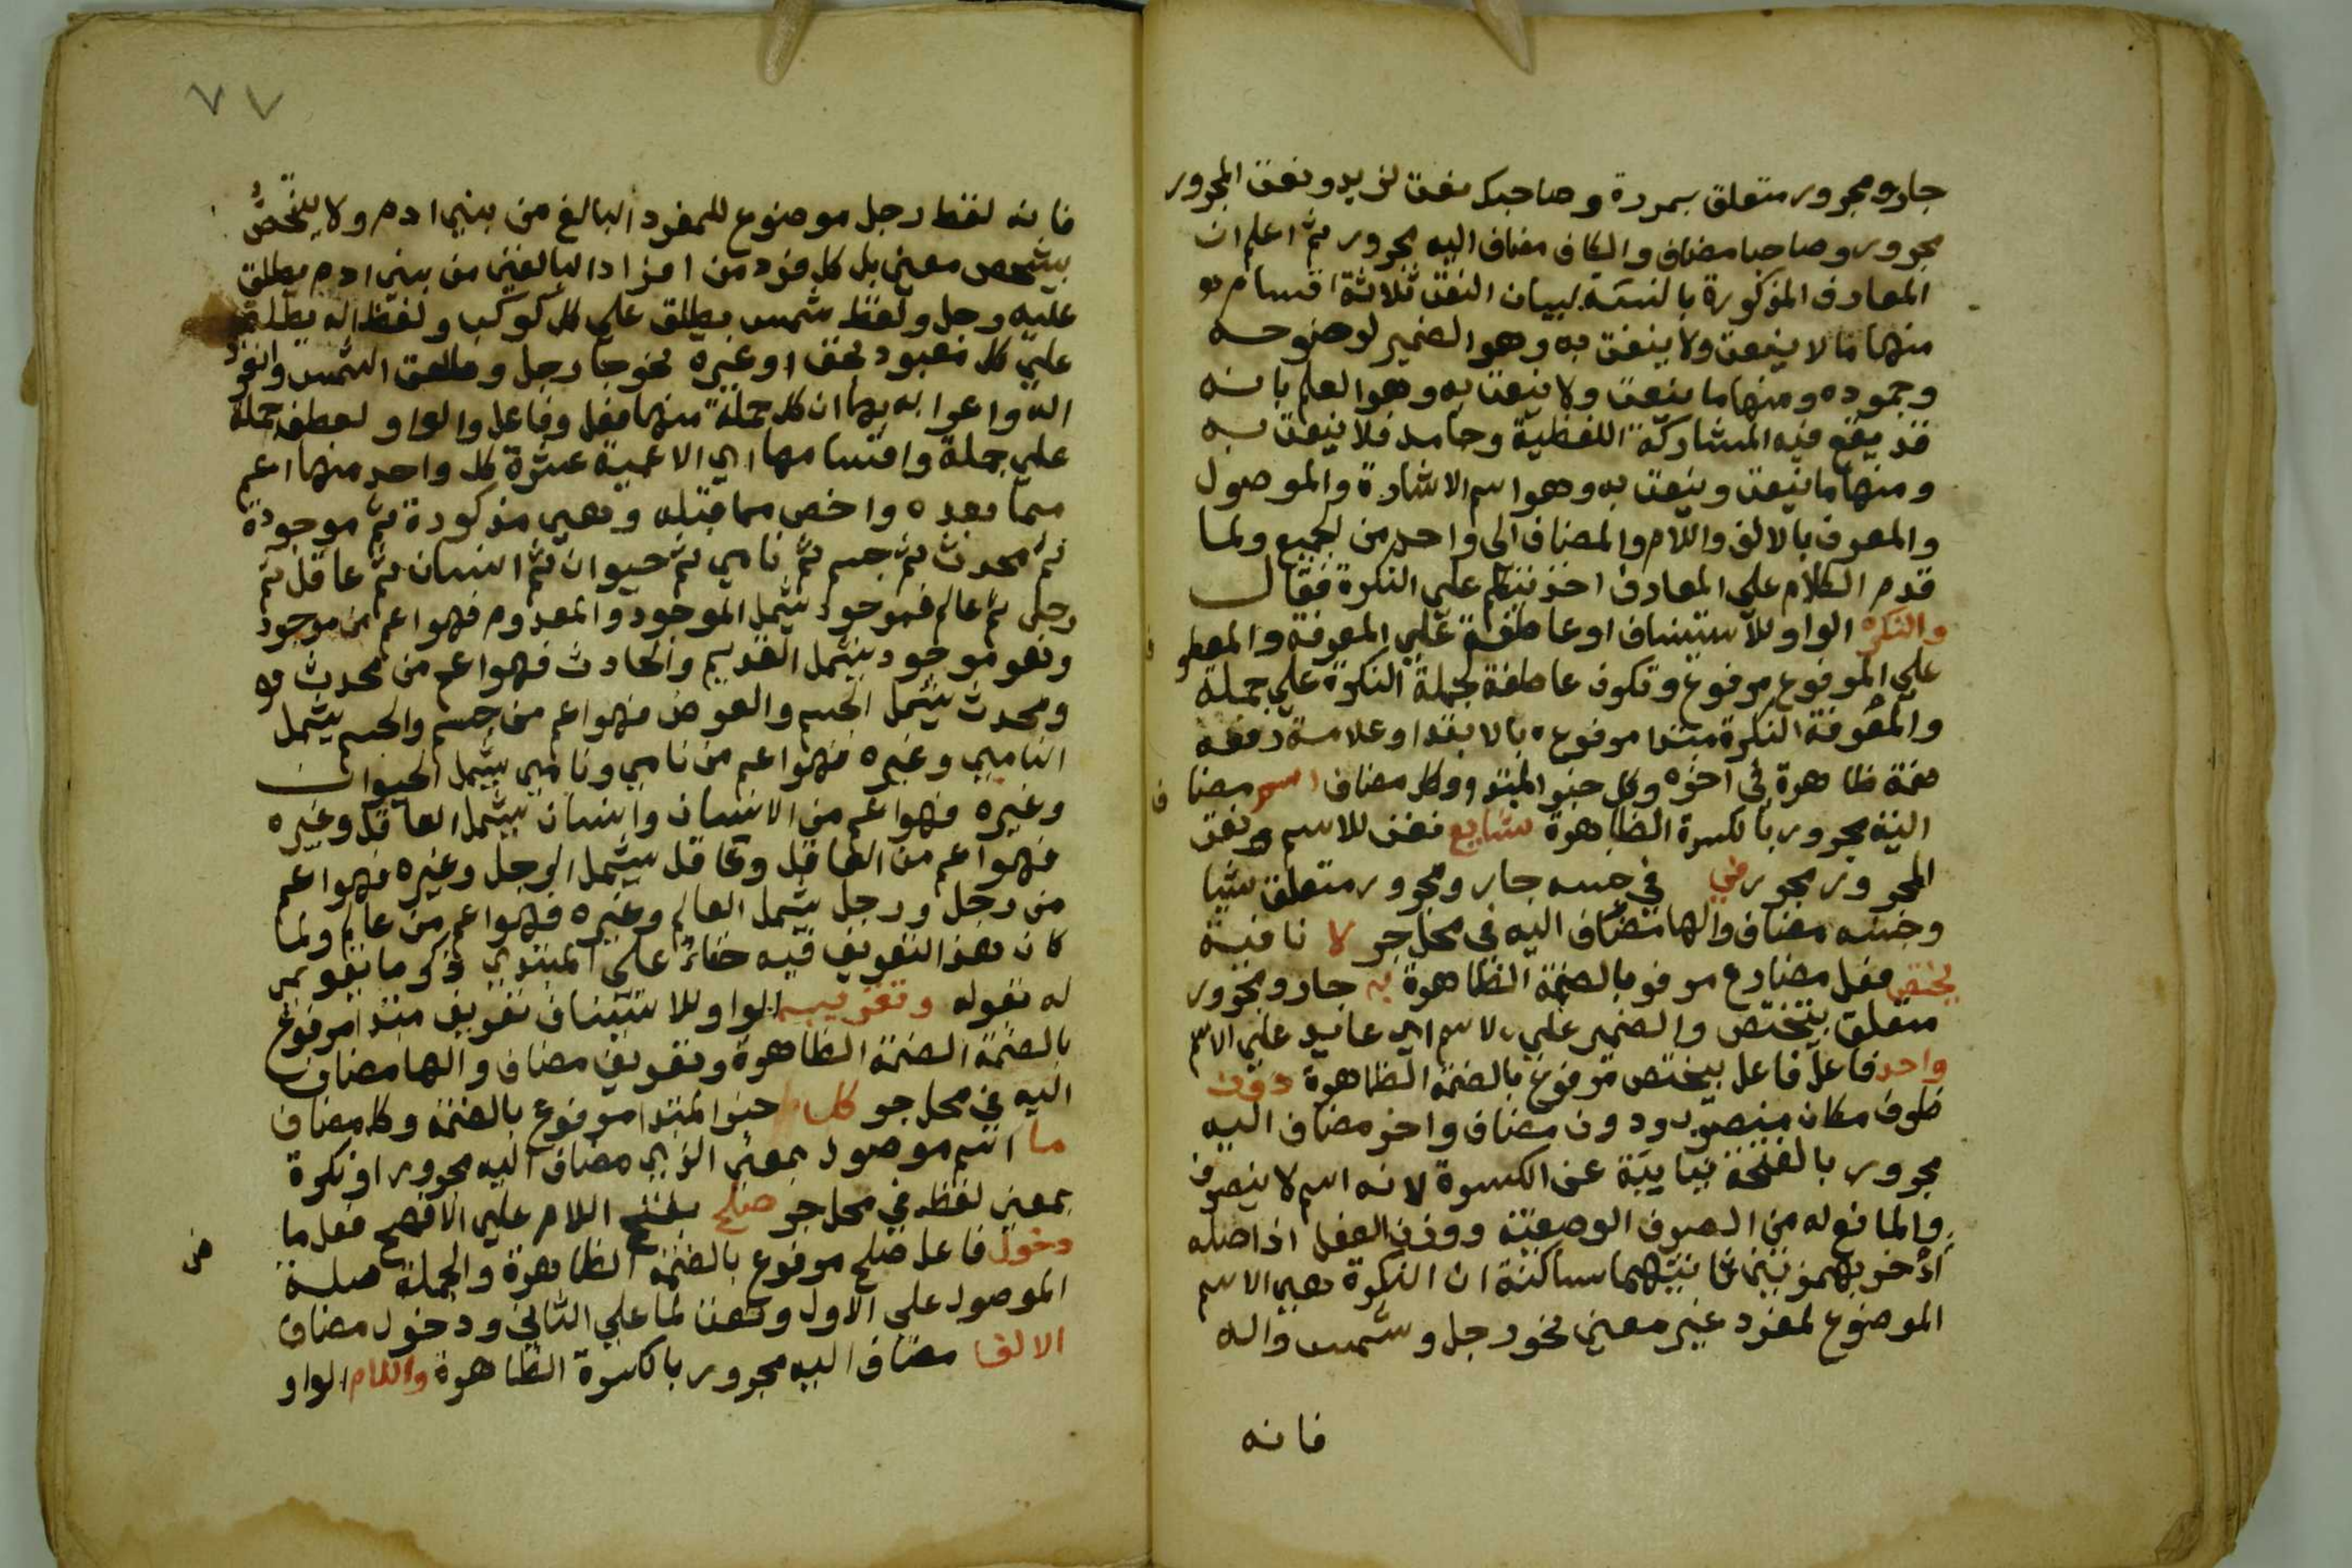 جار ومجرور متعلق بمررت وصاحبك نعت لزيد ونعت المجرور
مجرور وصاحب مضاف والكاف مضاف اليه مجرور ثم اعلم ان
المعارف المذكورة بالنسبة لبيان النعت ثلاثة اقسام
منها ما لا ينعت ولا ينعت به وهو الضمير لوضوحه
وجموده ومنها ما ينعت ولا ينعت به وهو العلم بانه
قد يقع فيه المشاركة اللفظية وجامد فلا ينعت به
ومنها ما ينعت وينعت به وهو اسم الاشارة والموصول
والمعرف بالالف واللام والمضاف الى واحد من الجميع ولما
قدم الكلام على المعارف اخذ يتكلم على النكرة فقال
والنكرة الواو للاستيناف او عاطفة علي المعرفة والمعطو ف
علي المرفوع مرفوع وتكون عاطفة لجملة النكرة علي جملة
والمعرفة النكرة مبتدا مرفوعه بالابتدا وعلامة رفعه
ضمة ظاهرة في اخره وكل خبر المبتدو وكل مضاف اسم مضا ف
اليه مجرور بالكسرة الظاهرة شايع نعت للاسم ونعت
المجرور مجرور في في جنسه جار ومجرور متعلق بشيا
وجنسه مضاف والها مضاف اليه في محل جر لا نافية
يختص فعل مضارع مرفوع بالضمة الظاهرة به جار ومجرور
متعلق بيختص والضمير علي الاسم اي عايد علي الاسم
واحد فاعل فاعل بيختص مرفوع بالضمة الظاهرة دون
ظرف مكان منصوب ودون مضاف واخر مضاف اليه
مجرور بالفتحة نيابية عن الكسرة لانه اسم لا ينصرف
والمانع له من الصرف الوصفية ووزن الفعل اذ اصله
أأخر بهمزتين ثانيتهما ساكنة ان النكرة هي الاسم
الموضوع لمفرد غير معين نحو رجل وشمس واله
فانه
٧٧
فانه لفظ رجل موضوع للمفرد البالغ من بني ادم ولا يختص
بشخص معين بل كل فرد من افراد البالغين من بني ادم يطلق
عليه رجل ولفظ شمس يطلق علي كل كوكب ولفظ اله يطلق
علي كل معبود بحق او غيره نحو جا رجل وطلعت الشمس وانفرد
اله واعرابه بها ان كل جملة منها فعل وفاعل والواو لعطف جملة
علي جملة واقسامها اي الاعمية عشرة كل واحد منها اعم
مما بعده واخص مما قبله وهي مذكورة ثم موجودة
ثم محدث ثم جسم ثم نامي ثم حيوان ثم انسان ثم عاقل ثم
رجل ثم عالم فموجود يشمل الموجود والمعدوم فهو اعم من موجود
وهو موجود يشمل القديم والحادث فهو اعم من محدث
ومحدث يشمل الجسم والعرض فهو اعم من جسم والجسم يشمل
النامي وغيره فهو اعم من نامي ونامي يشمل الحيوان
وغيره فهو اعم من الانسان وانسان يشمل العاقل وغيره
فهو اعم من العاقل وعاقل يشمل الرجل وغيره فهو اعم
من رجل ورجل يشمل العالم وغيره فهو اعم من عالم ولما
كان هذا التعريف فيه خفاء على المبتدي ذكر ما يقرب
له بقوله وتقريبه الواو للاستيناف تقريب مبتدا مرفوع
بالضمة الضمة الظاهرة وتقريب مضاف والها مضاف
اليه في محل جر كل خبر المبتدا مرفوع بالضمة وكل مضاف
ما اسم موصول بمعني الذي مضاف اليه مجرور او نكرة
بمعني لفظ في محل جر صلح بفتح اللام علي الافصح فعل ما ض
دخول فاعل صلح مرفوع بالضمة الظاهرة والجملة صلة
الموصول على الاول ونعت لما علي الثاني ودخول مضاف
الالف مضاف اليه مجرور بالكسرة الظاهرة واللام الواو